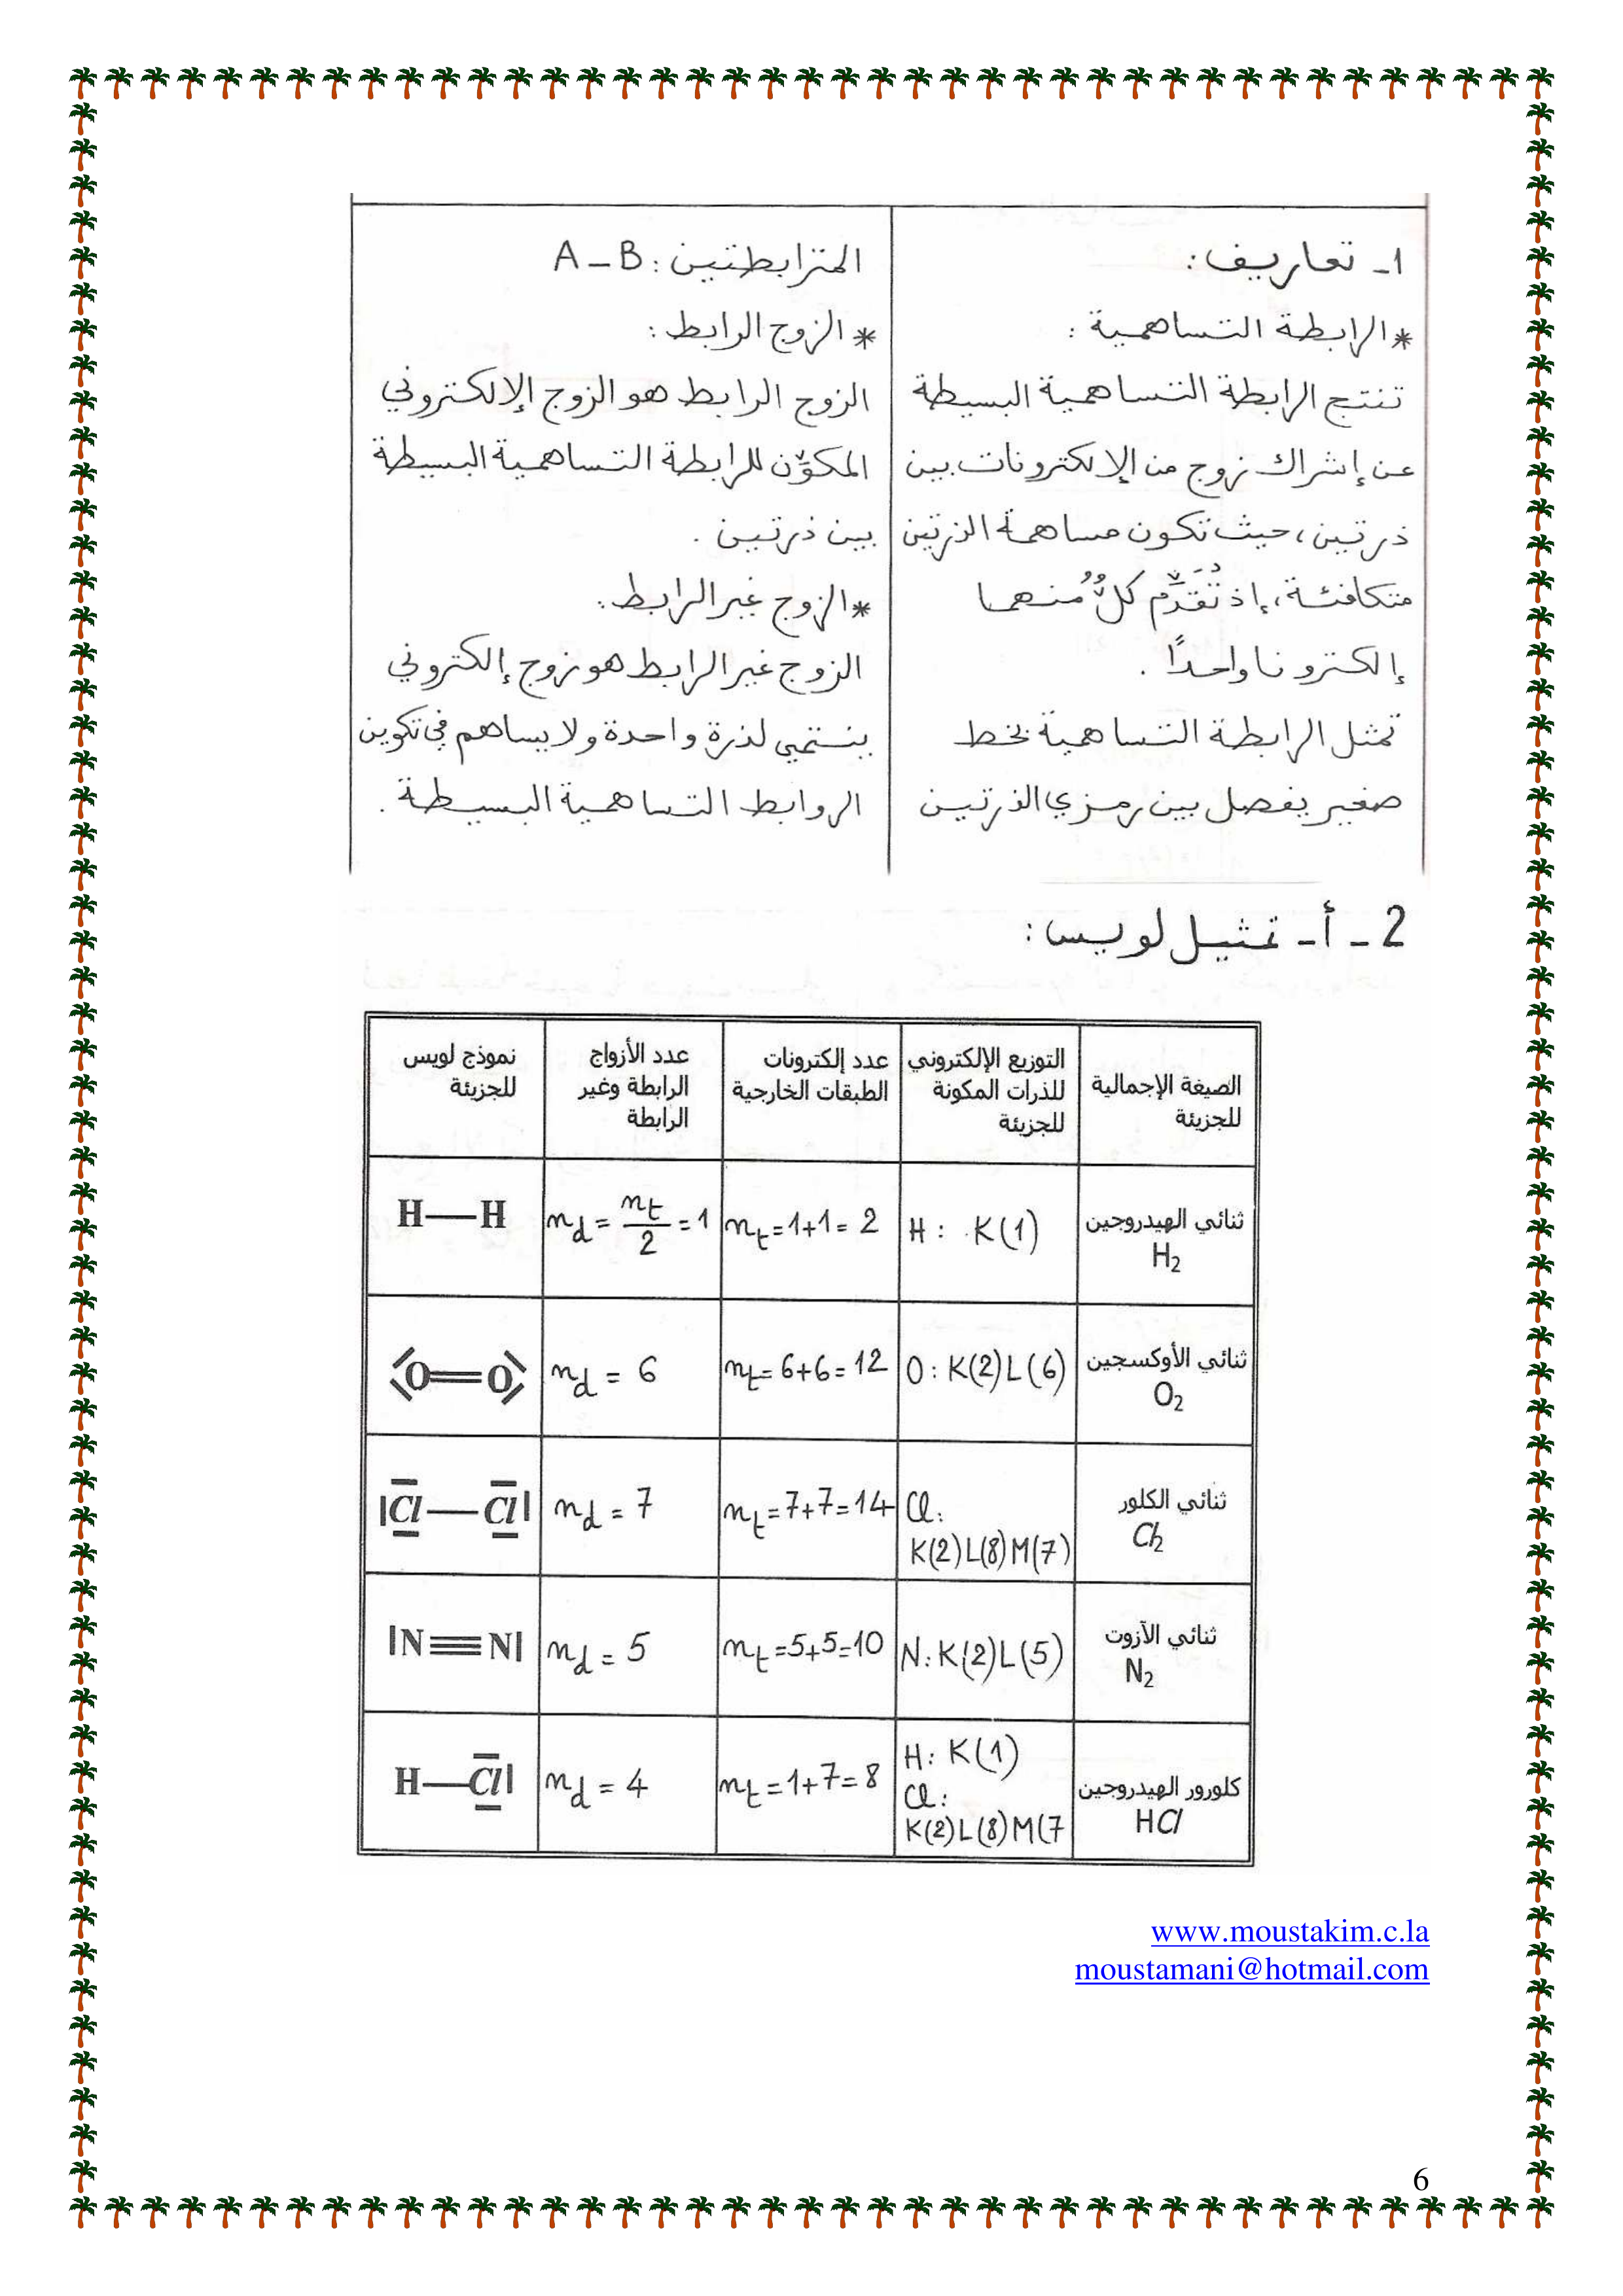 1- تعاريف :
* الرابطة التساهمية :
تنتج الرابطة التساهمية البسيطة
عن إشراك زوج من الإلكترونات بين
ذرتين، حيث تكون مساهمة الذرتين
متكافئة، إذ تُقَدِّم كلٌّ منهما
إلكترونا واحدًا .
تمثل الرابطة التساهمية بخط
صغير يفصل بين رمزي الذرتين
المترابطتين : A – B
* الزوج الرابط :
الزوج الرابط هو الزوج الإلكتروني
المكوّن للرابطة التساهمية البسيطة
بين ذرتين .
* الزوج غير الرابط :
الزوج غير الرابط هو زوج إلكتروني
ينتمي لذرة واحدة ولا يساهم في تكوين
الروابط التساهمية البسيطة .
2 - أ - تمثيل لويس :
الصيغة الإجمالية
للجزيئة
التوزيع الإلكتروني
للذرات المكونة
للجزيئة
عدد إلكترونات
الطبقات الخارجية
عدد الأزواج
الرابطة وغير
الرابطة
نموذج لويس
للجزيئة
ثنائي الهيدروجين
H₂
H : K(1)
nt=1+1= 2
nd = nt/2 = 1
H—H
ثنائي الأوكسجين
O₂
O : K(2)L(6)
nt=6+6=12
nd = 6
O=O
ثنائي الكلور
Cl₂
Cl:
K(2)L(8)M(7)
nt=7+7=14
nd = 7
|Cl—Cl|
ثنائي الآزوت
N₂
N: K(2)L(5)
nt=5+5=10
nd = 5
|N≡N|
كلورور الهيدروجين
HCl
H: K(1)
Cl:
K(2)L(8)M(7
nt=1+7=8
nd = 4
H—Cl|
www.moustakim.c.la
moustamani@hotmail.com
6